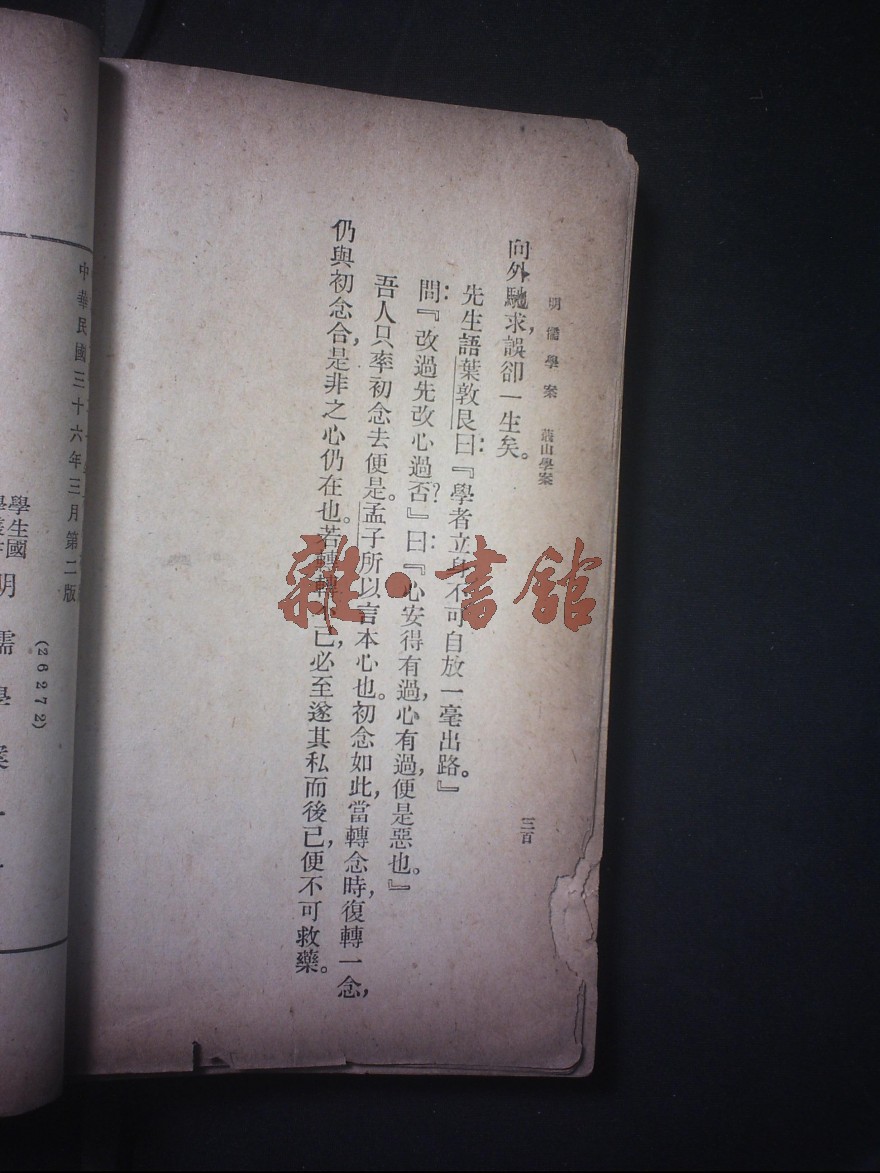 明儒學案　蕺山學案
三百
向外馳求，誤卻一生矣。
先生語葉敦艮曰：『學者立身不可自放一毫出路。』
問：『改過先改心過否？』曰：『心安得有過，心有過，便是惡也。』
吾人只率初念去便是。孟子所以言本心也。初念如此，當轉念時，復轉一念，
仍與初念合，是非之心仍在也。若轉轉不已，必至遂其私而後已，便不可救藥。
雜·書館
中華民國三十六年三月第二版
學生國
明儒學案一
(26272)